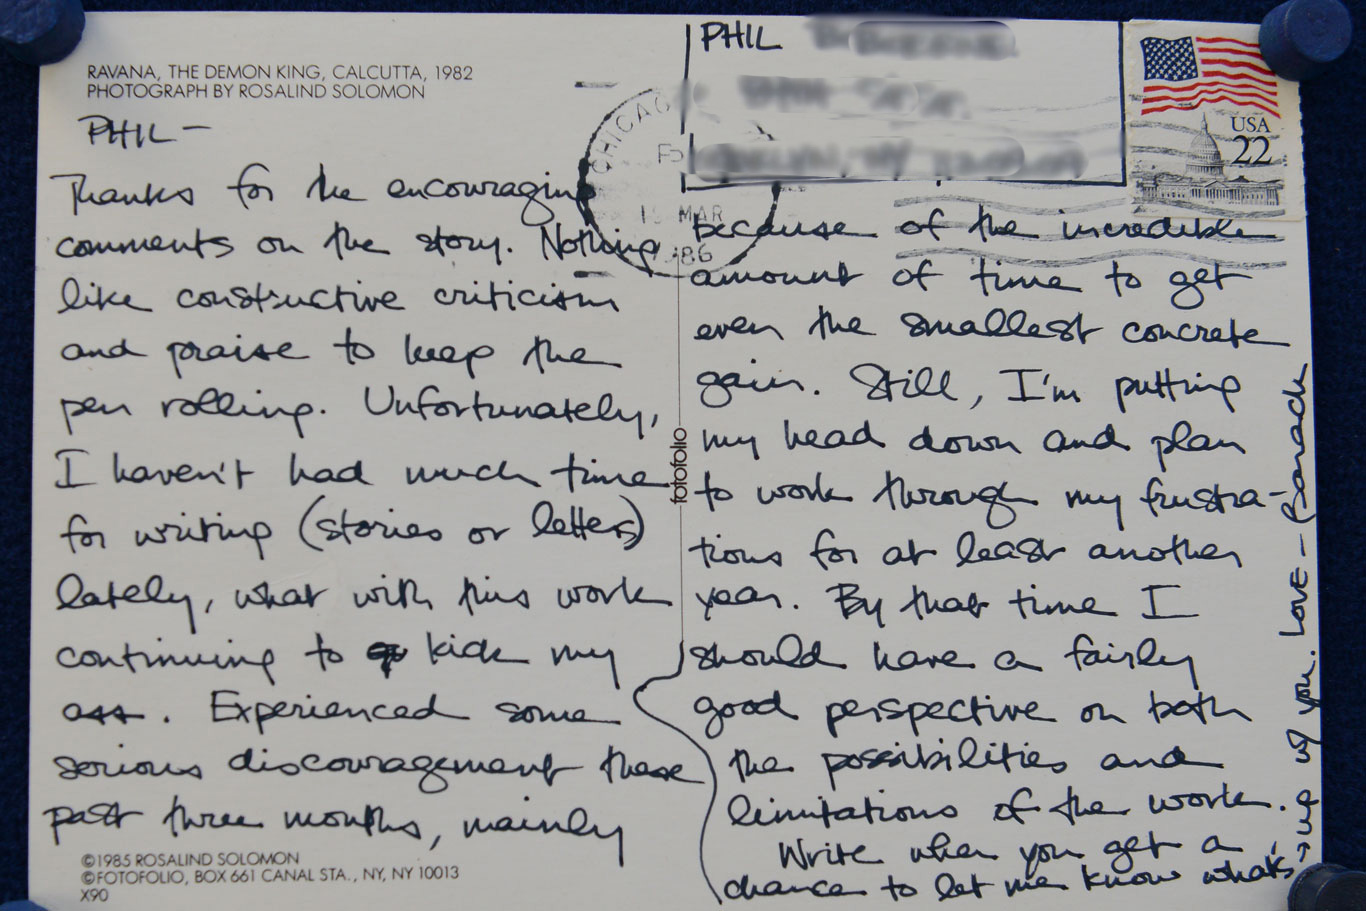 RAVANA, THE DEMON KING, CALCUTTA, 1982
PHOTOGRAPH BY ROSALIND SOLOMON
PHIL —
Thanks for the encouraging
comments on the story. Nothing
like constructive criticism
and praise to keep the
pen rolling. Unfortunately,
I haven't had much time
for writing (stories or letters)
lately, what with this work
continuing to kick my
ass. Experienced some
serious discouragement these
past three months, mainly
©1985 ROSALIND SOLOMON
©FOTOFOLIO, BOX 661 CANAL STA., NY, NY 10013
X90
fotofolio
PHIL
CHICAGO
19 MAR
1986
USA
22
because of the incredible
amount of time to get
even the smallest concrete
gain. Still, I'm putting
my head down and plan
to work through my frustra-
tions for at least another
year. By that time I
should have a fairly
good perspective on both
the possibilities and
limitations of the work.
Write when you get a
chance to let me know what's
up w/ you. Love — Barack